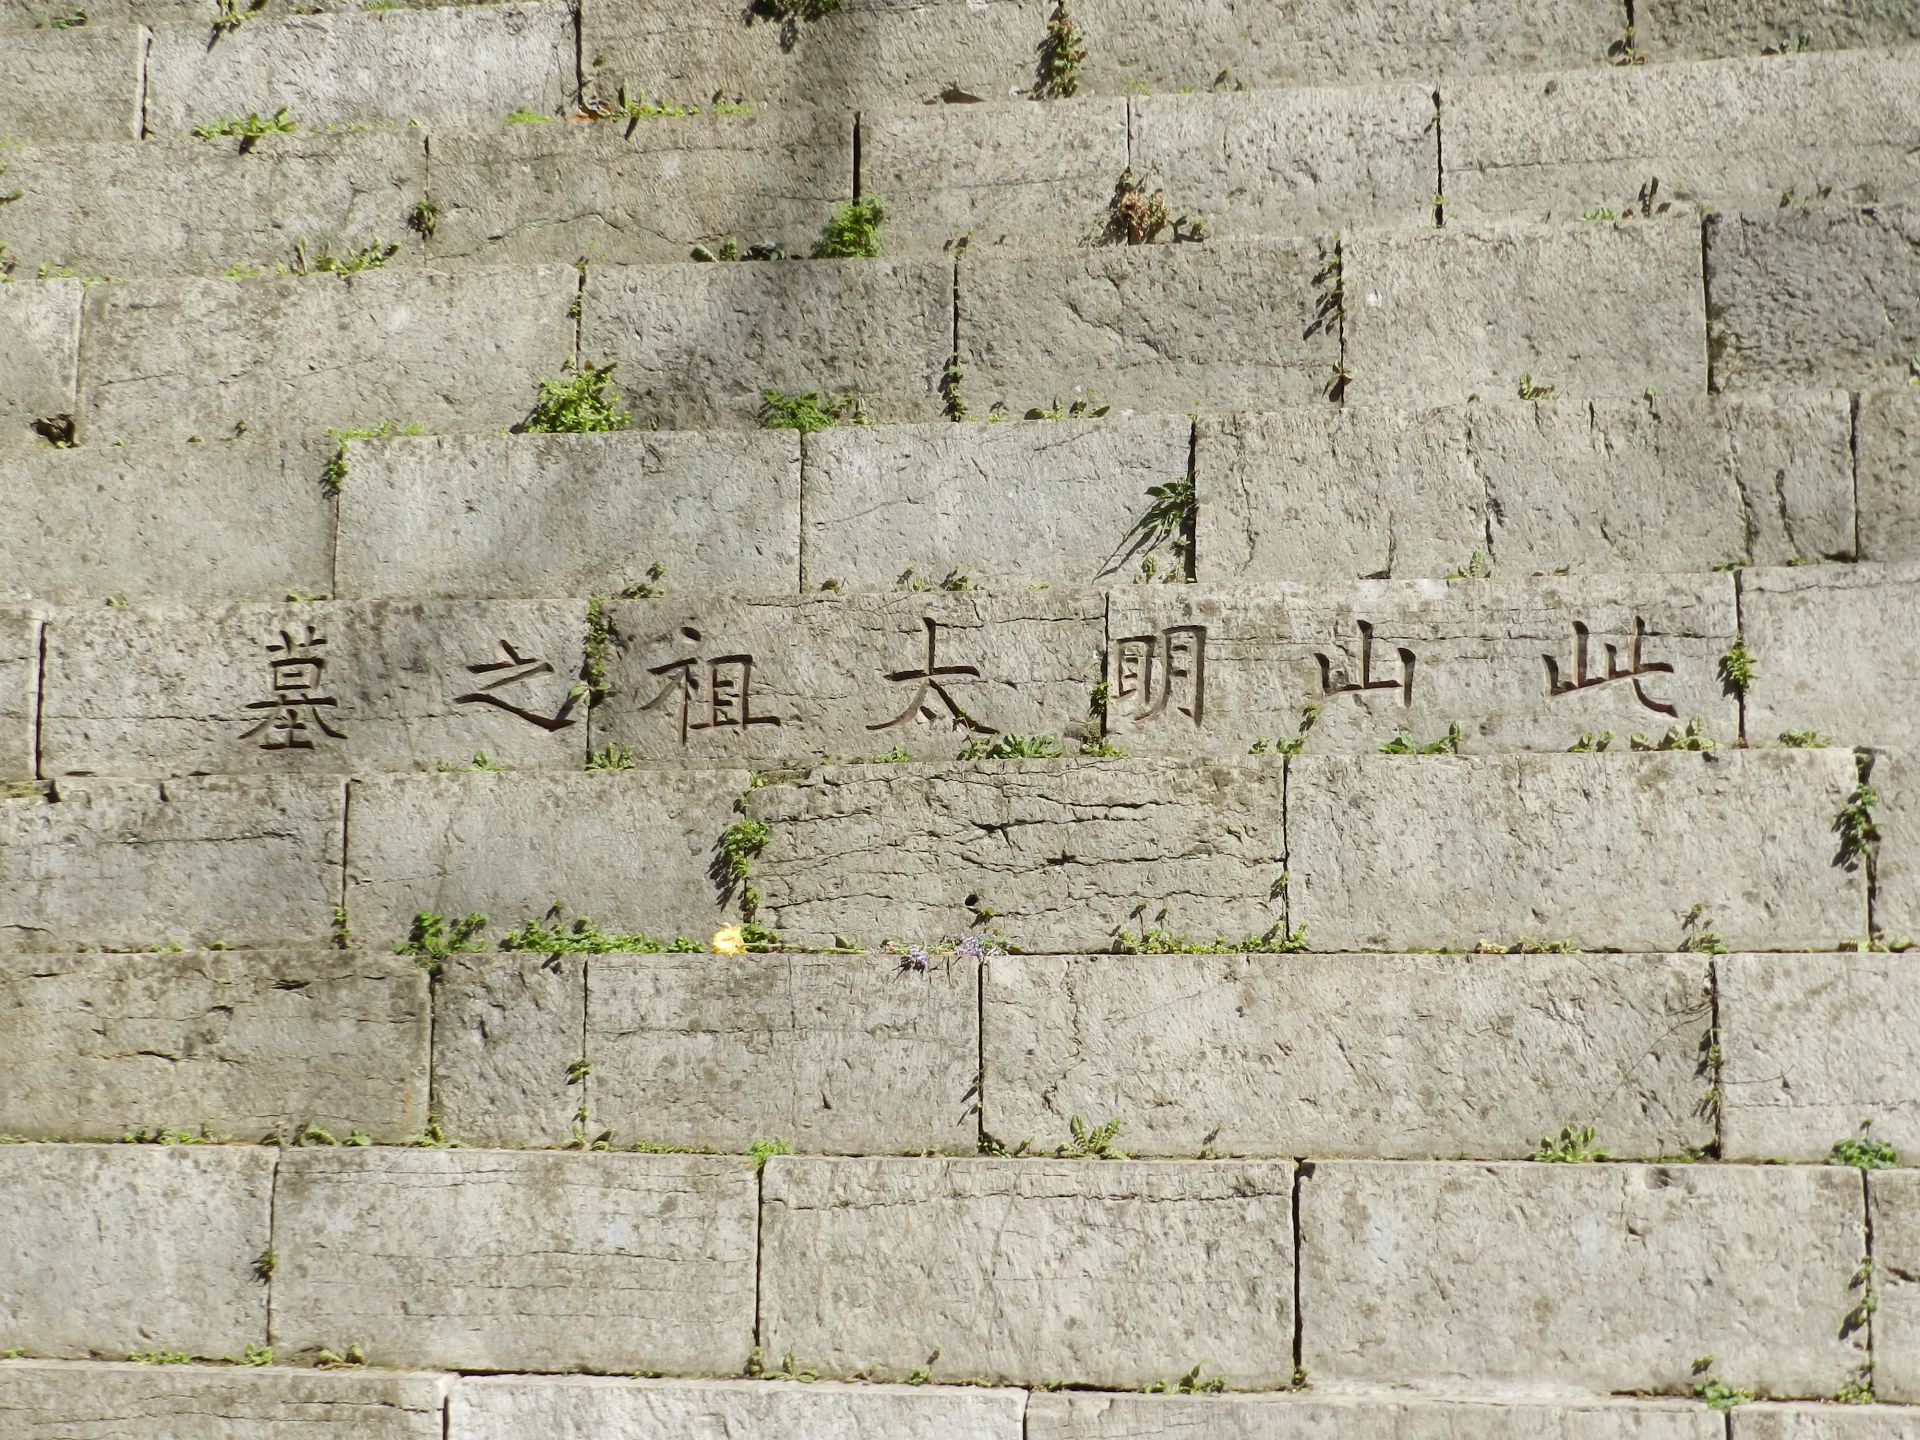 此山明太祖之墓